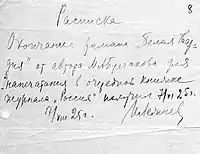 8
Расписка
Окончание романа „Белая Гвар-
дия" от автора М. Булгакова для
напечатания в очередной книжке
журнала „Россия" получил 7/VIII 25 г.
7/VIII 25 г. И. Лежнев